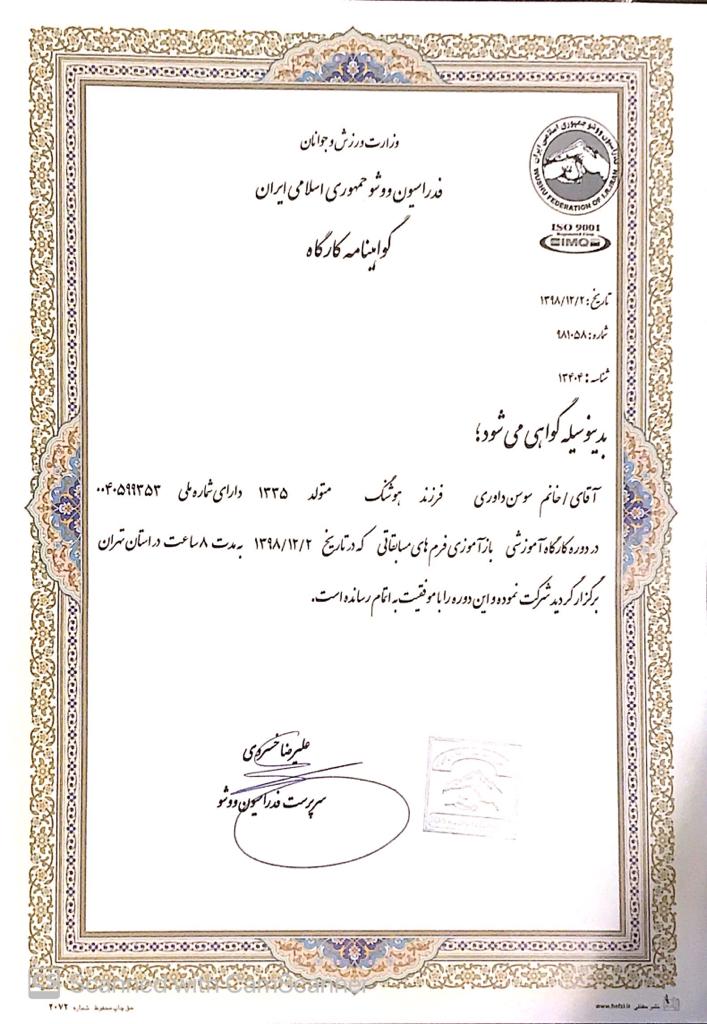 وزارت ورزش و جوانان
فدراسیون ووشو جمهوری اسلامی ایران
گواهینامه کارگاه
فدراسیون ووشو جمهوری اسلامی ایران
WUSHU FEDERATION OF I.R.IRAN
ISO 9001
SIMQ
تاریخ: ۱۳۹۸/۱۲/۲
شماره: ۹۸۱۰۵۸
شناسه: ۱۳۴۰۴
بدینوسیله گواهی می شود؛
آقای / خانم سوسن داوری فرزند هوشنگ متولد ۱۳۳۵ دارای شماره ملی ۰۰۴۰۵۹۹۳۵۳
در دوره کارگاه آموزشی بازآموزی فرم های مسابقاتی که در تاریخ ۱۳۹۸/۱۲/۲ به مدت ۸ ساعت در استان تهران
برگزار گردید شرکت نموده و این دوره را با موفقیت به اتمام رسانده است.
علیرضا خسروی
سرپرست فدراسیون ووشو
Scanned with CamScanner
حق چاپ محفوظ شماره ۲۰۷۲
www.hefzi.ir